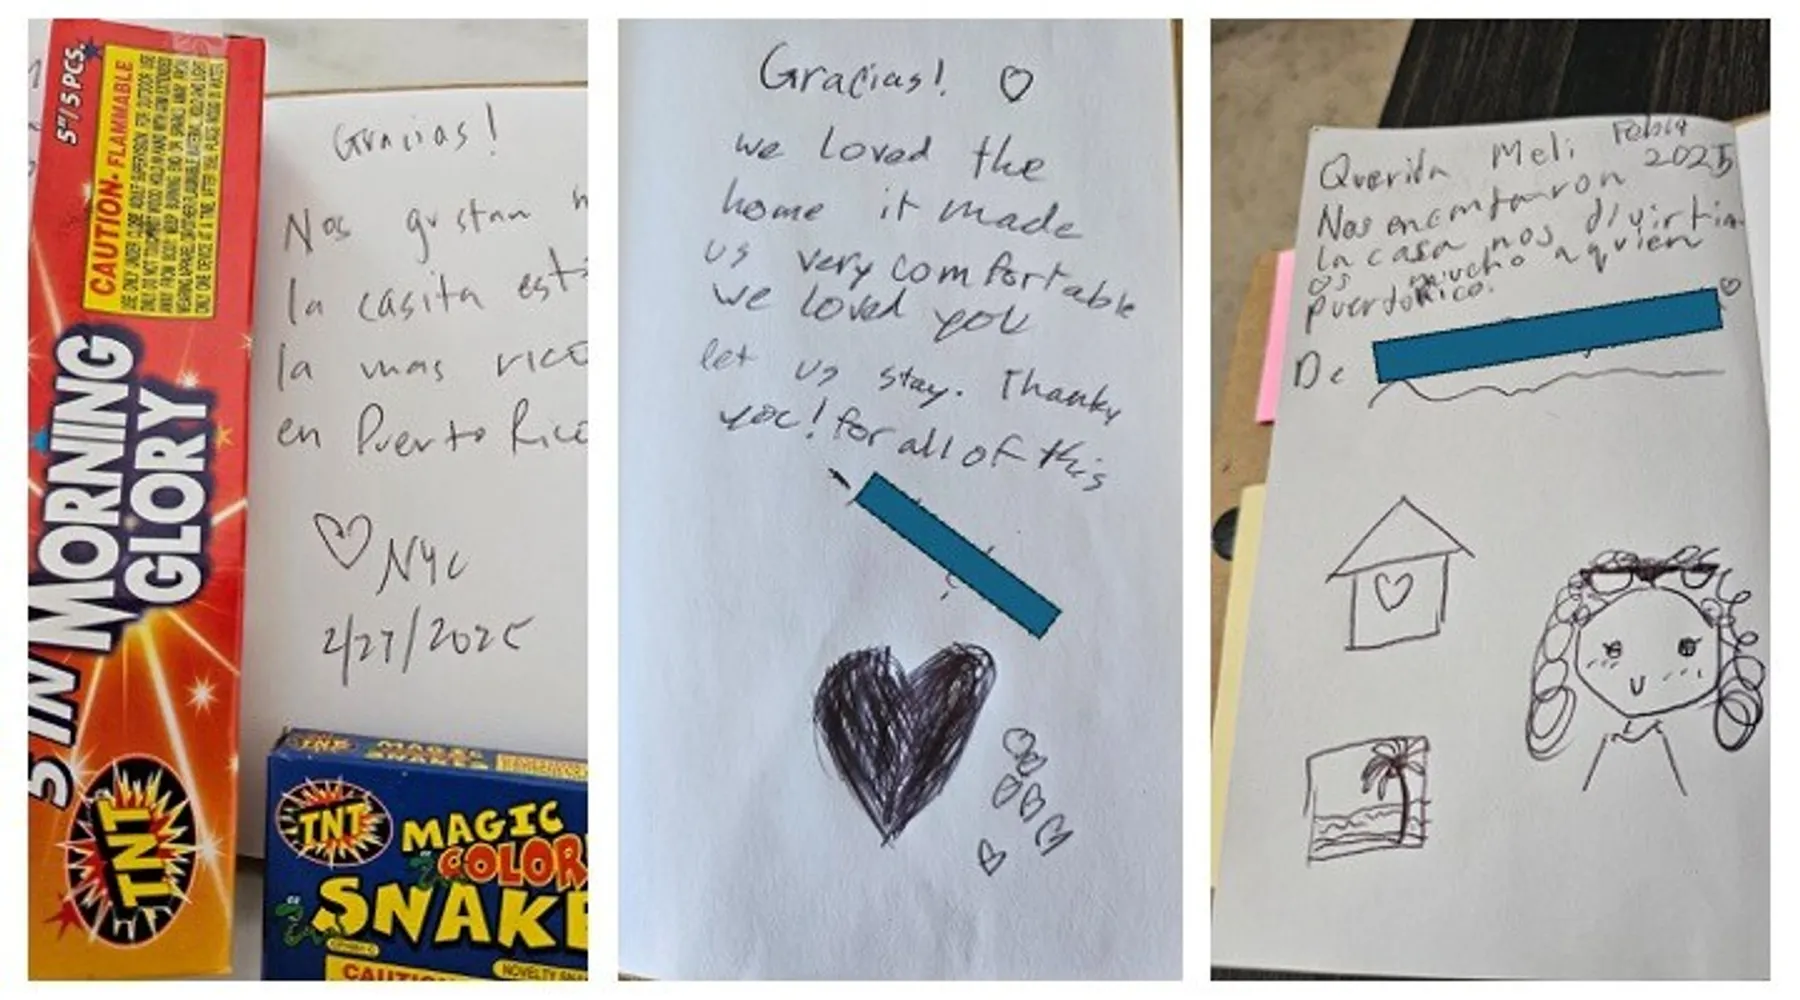 5"/5 PCS.
CAUTION- FLAMMABLE
5 IN MORNING
GLORY
TNT
Gracias!
Nos gustan
la casita est
la mas rico
en Puerto Rico
NYC
2/27/2025
TNT
MAGIC
COLOR
SNAKE
NOVELTY
Gracias!
we loved the
home it made
us very comfortable
we loved you
let us stay. Thanky
you! for all of this
Querida Meli
2025
Nos encantaron
la casa nos divirtim
os mucho aquien
puerdoRico.
De